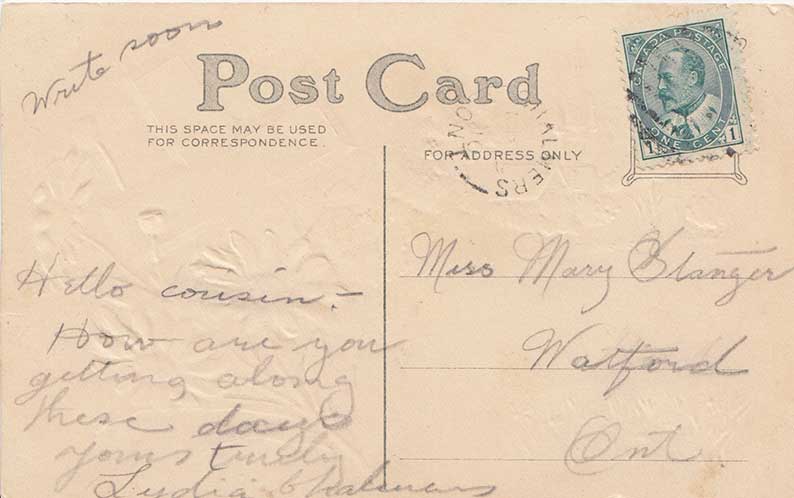 Write soon
Post Card
THIS SPACE MAY BE USED
FOR CORRESPONDENCE.
FOR ADDRESS ONLY
CANADA POSTAGE
ONE CENT
1 1
CHALMERS
ONT
Hello cousin:-
How are you
getting along
these days
yours truly
Lydia Chalmers
Miss Mary Stanger
Watford
Ont